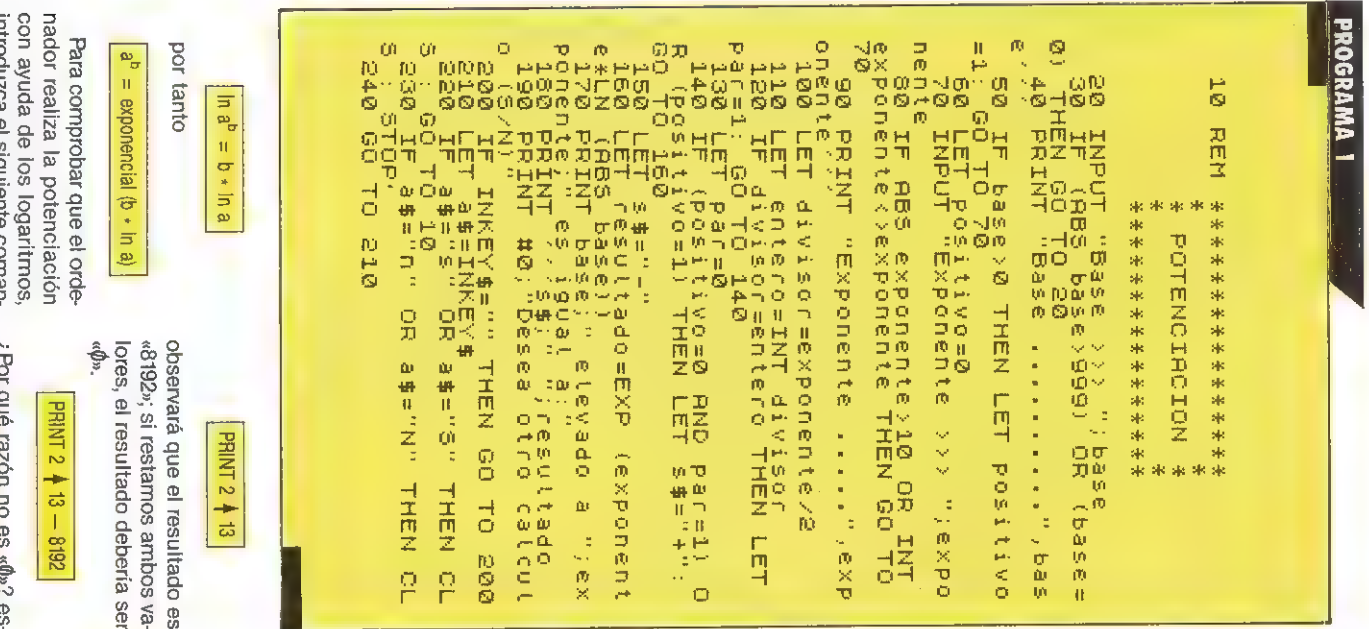 PROGRAMA 1
10 REM ****************
*              *
* POTENCIACION *
*              *
****************
20 INPUT "Base >>> ";base
30 IF (ABS base>999) OR (base=
0) THEN GO TO 20
40 PRINT "Base ..........",bas
e''
50 IF base>0 THEN LET positivo
=1: GO TO 70
60 LET positivo=0
70 INPUT "Exponente >>> ";expo
nente
80 IF ABS exponente>10 OR INT
exponente<>exponente THEN GO TO
70
90 PRINT "Exponente .....",exp
onente''
100 LET divisor=exponente/2
110 LET entero=INT divisor
120 IF divisor=entero THEN LET
par=1: GO TO 140
130 LET par=0
140 IF (positivo=0 AND par=1) O
R (positivo=1) THEN LET s$="+":
GO TO 160
150 LET s$="-"
160 LET resultado=EXP (exponent
e*LN (ABS base))
170 PRINT base;" elevado a ";ex
ponente;" es igual a:"
180 PRINT ''s$;" ";resultado
190 PRINT #0;"Desea otro calcul
o (S/N)"
200 IF INKEY$="" THEN GO TO 200
210 LET a$=INKEY$
220 IF a$="s" OR a$="S" THEN CL
S : GO TO 10
230 IF a$="n" OR a$="N" THEN CL
S : STOP
240 GO TO 210
ln aᵇ = b * ln a
por tanto
aᵇ = exponencial (b * ln a)
Para comprobar que el orde-
nador realiza la potenciación
con ayuda de los logaritmos,
introduzca el siguiente coman-
PRINT 2 ↑ 13
observará que el resultado es
«8192»; si restamos ambos va-
lores, el resultado debería ser
«Ø».
PRINT 2 ↑ 13 — 8192
¿Por qué razón no es «Ø»? es-